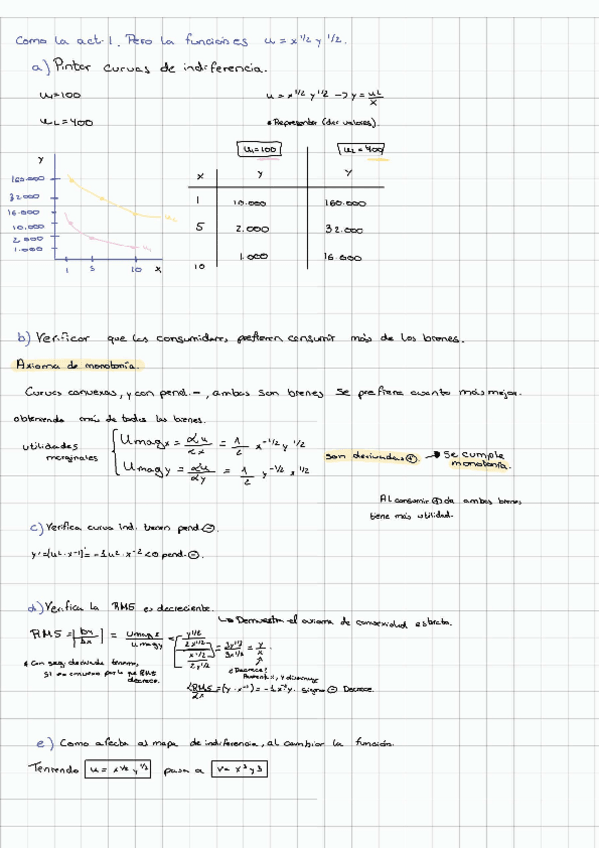 Como la act. 1. Pero la función es u = x^1/2 y^1/2.
a) Pintar curvas de indiferencia.
u₁=100
u = x^1/2 y^1/2 -> y = u²/x
u₂=400
• Representar (dar valores).
u₁=100
u₂=400
x y y
1 10.000 160.000
5 2.000 32.000
10 1.000 16.000
y
160.000
32.000
16.000
10.000
2.000
1.000
1 5 10 x
u₂
u₁
b) Verificar que los consumidores prefieren consumir más de los bienes.
Axioma de monotonía.
Curvas convexas, y con pend. -, ambas son bienes se prefiere cuanto más mejor.
obteniendo más de todos los bienes.
utilidades marginales
Umagx = ∂u/∂x = 1/2 x^-1/2 y^1/2
Umagy = ∂u/∂y = 1/2 y^-1/2 x^1/2
son derivadas ⊕ → Se cumple monotonía.
Al consumir ⊕ de ambos bienes
tiene más utilidad.
c) Verifica curva ind. tienen pend ⊖.
y' = (u² · x^-1)' = -1u² · x^-2 <0 pend. ⊖.
d) Verifica la RMS es decreciente.
↳ Demuestra el axioma de convexidad estricta.
RMS = |Dy/Dx| = Umagx/Umagy = (y^1/2/2x^1/2)/(x^1/2/2y^1/2) = 2y^1/2/2x^1/2 = y/x
• Con seg. derivada tenemos
si es convexa por lo que RMS
decrece.
¿Decrece?
Aumenta x, y disminuye
∂RMS/∂x = (y · x^-1)' = -1x^-2y. Signo ⊖ Decrece.
e) Como afecta al mapa de indiferencia, al cambiar la función.
Teniendo u = x^1/2 y^1/2 pasa a v = x³y³